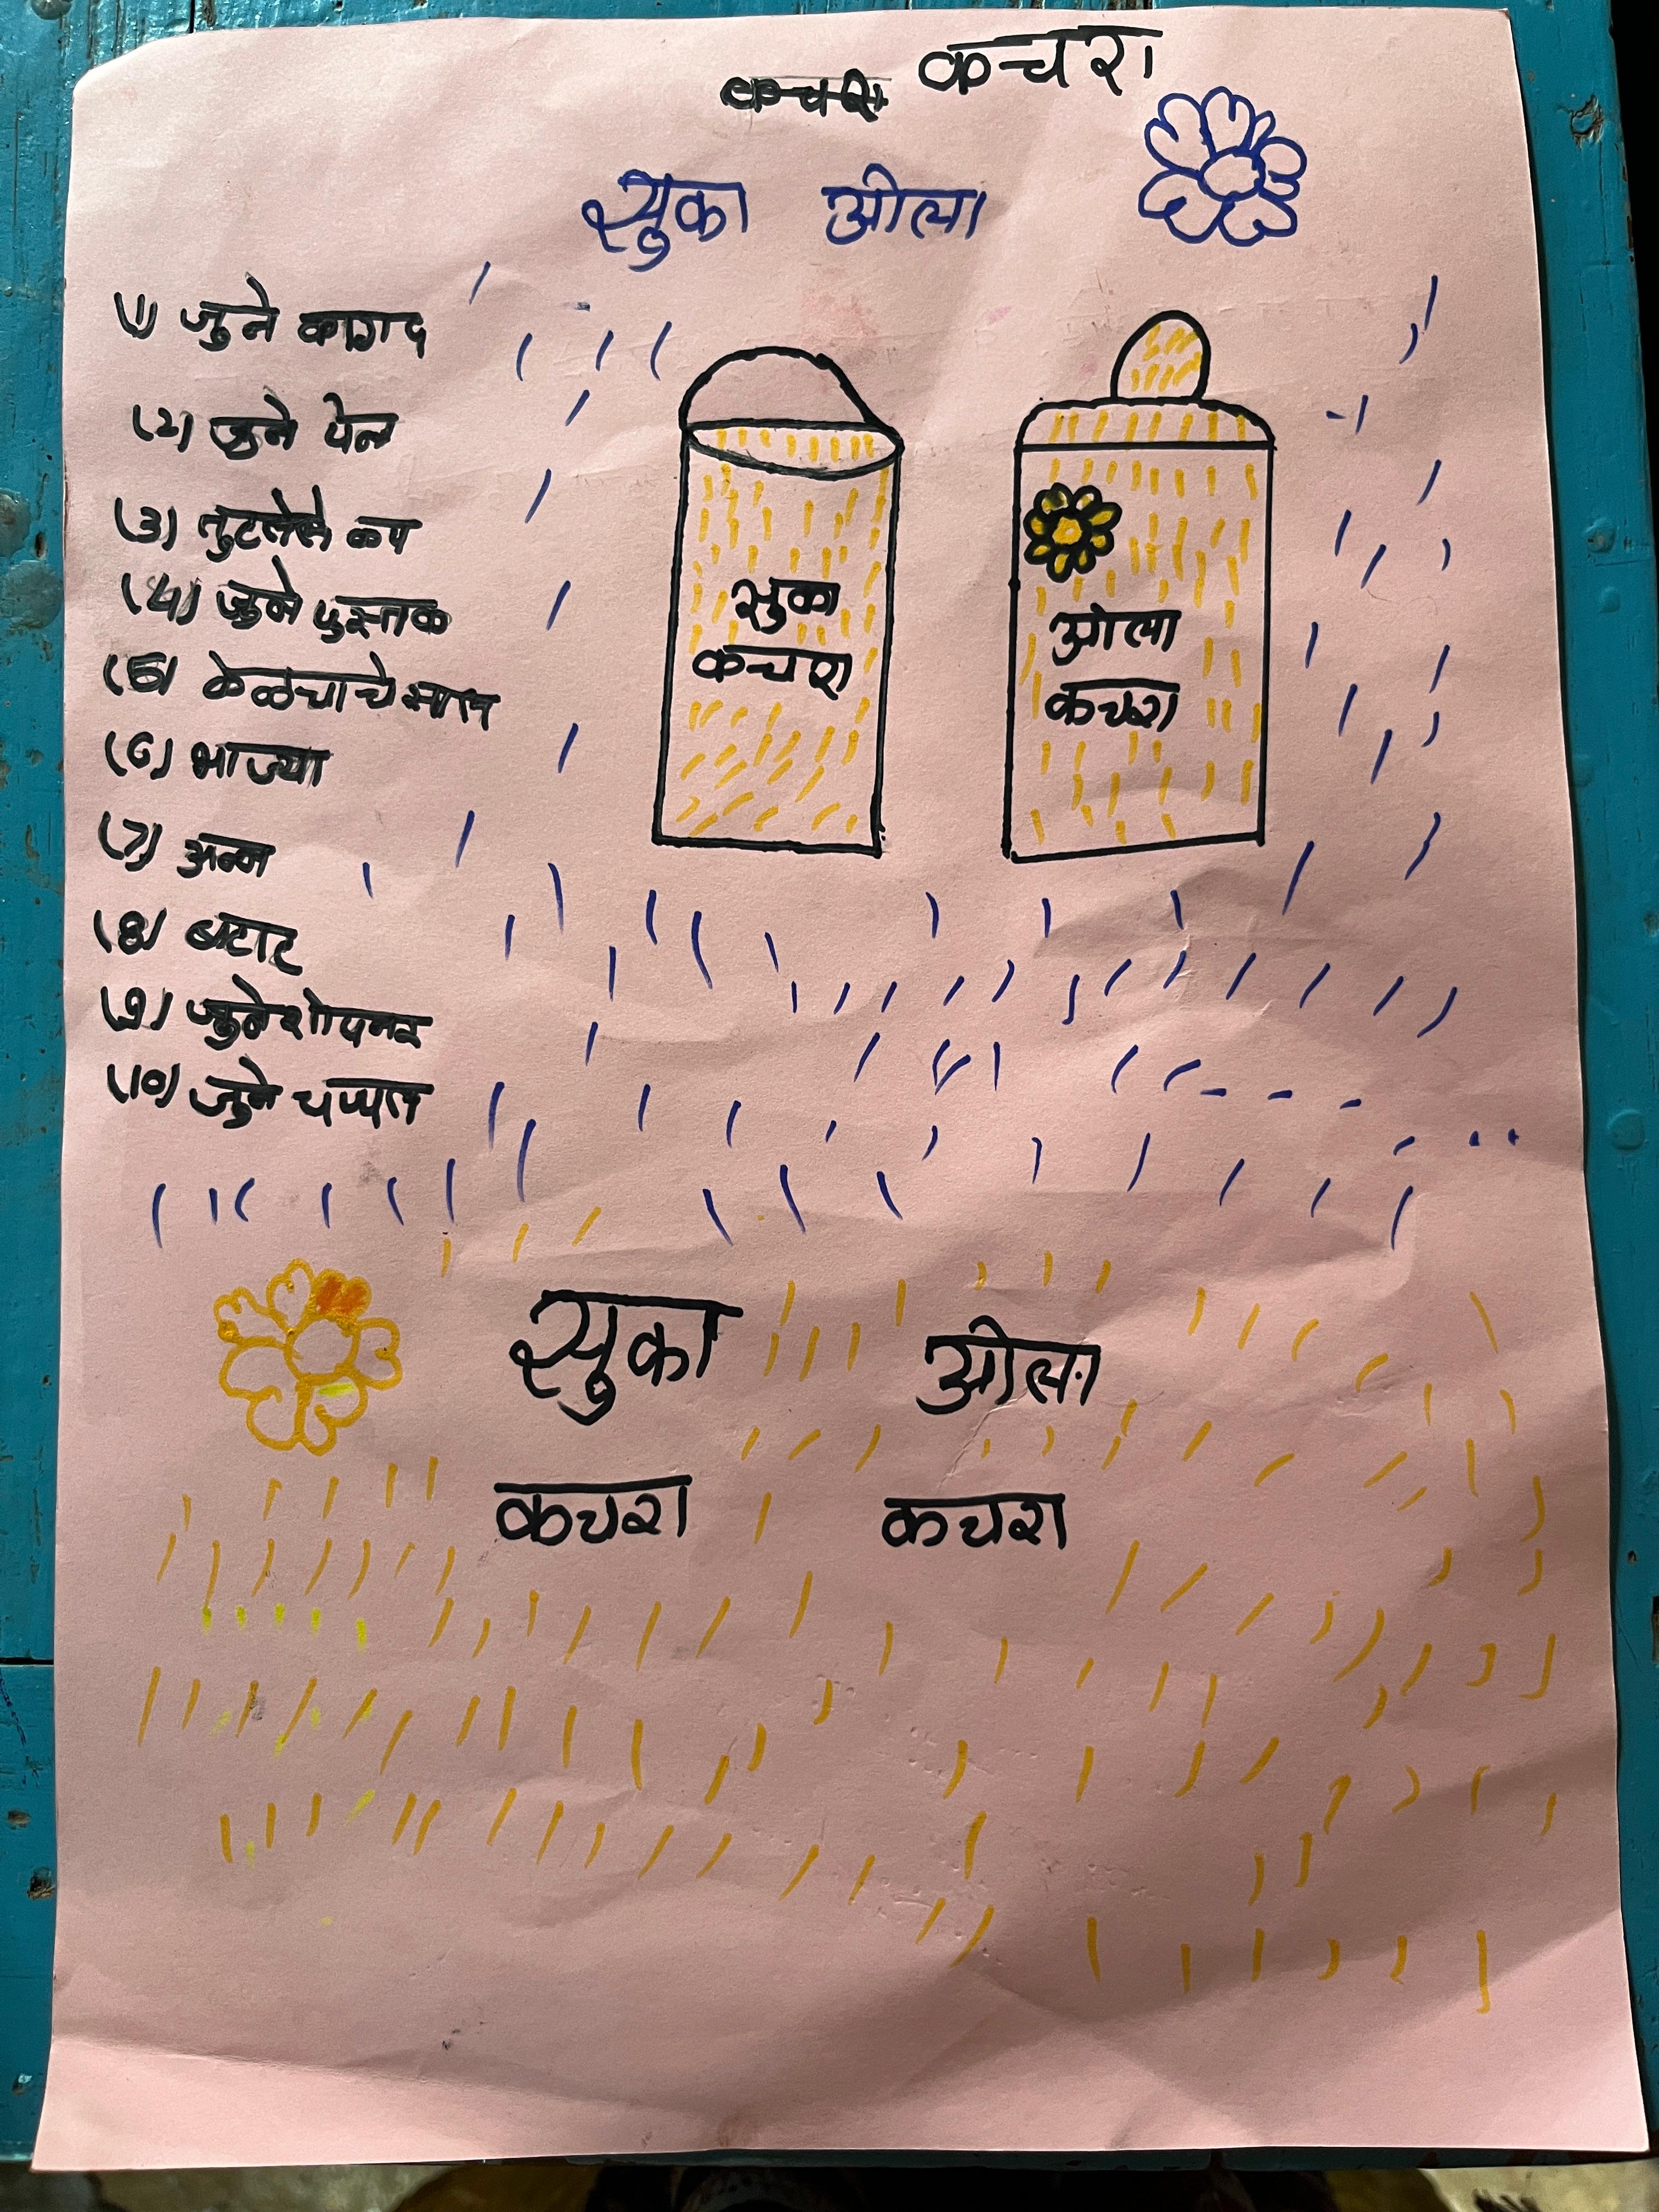 कचरा
सुका ओला
(1) जुने कागद
(2) जुने पेन
(3) तुटलेले कप
(4) जुने पुस्तक
(5) केळ्चाचे साल
(6) भाज्या
(7) अन्न
(8) बटाट
(9) जुने शोपनर
(10) जुने चप्पल
सुका
कचरा
ओला
कचरा
सुका ओला
कचरा कचरा